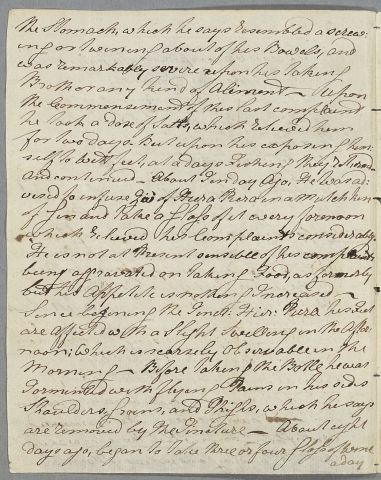 the Stomach, which he says resembled a screw-
ing or twining about of his Bowels, and
was remarkably severe upon his taking
Broth or any kind of Aliment – Upon
the Commencement of this last complaint
he took a dose of Salts, which relieved him
for two days. But upon his exposing him-
self to wett feet, at a days fishing they returned
and continued – About ten days ago, He was ad-
vised to infuse of Hiera Picra in a Mutchkin
of Gin and take a Glass of it every forenoon
which relieved his Complaints considerably
He is not at Present sensible of his complaints
being aggravated on taking Food, as formerly
but his Appetite is nothing Increased –
Since beginning the Tinct: Hier: Picra his feet
are affected with a slight swelling in the After-
noon; which is scarsely Observeable in the
Morning – Before taking the Bottle he was
Tormented with flying Pains in his sides
Shoulders, Groins, and Thighs, which he says
are removed by the Tincture – About eight
days ago, began to take three or four Glass of wine
a day